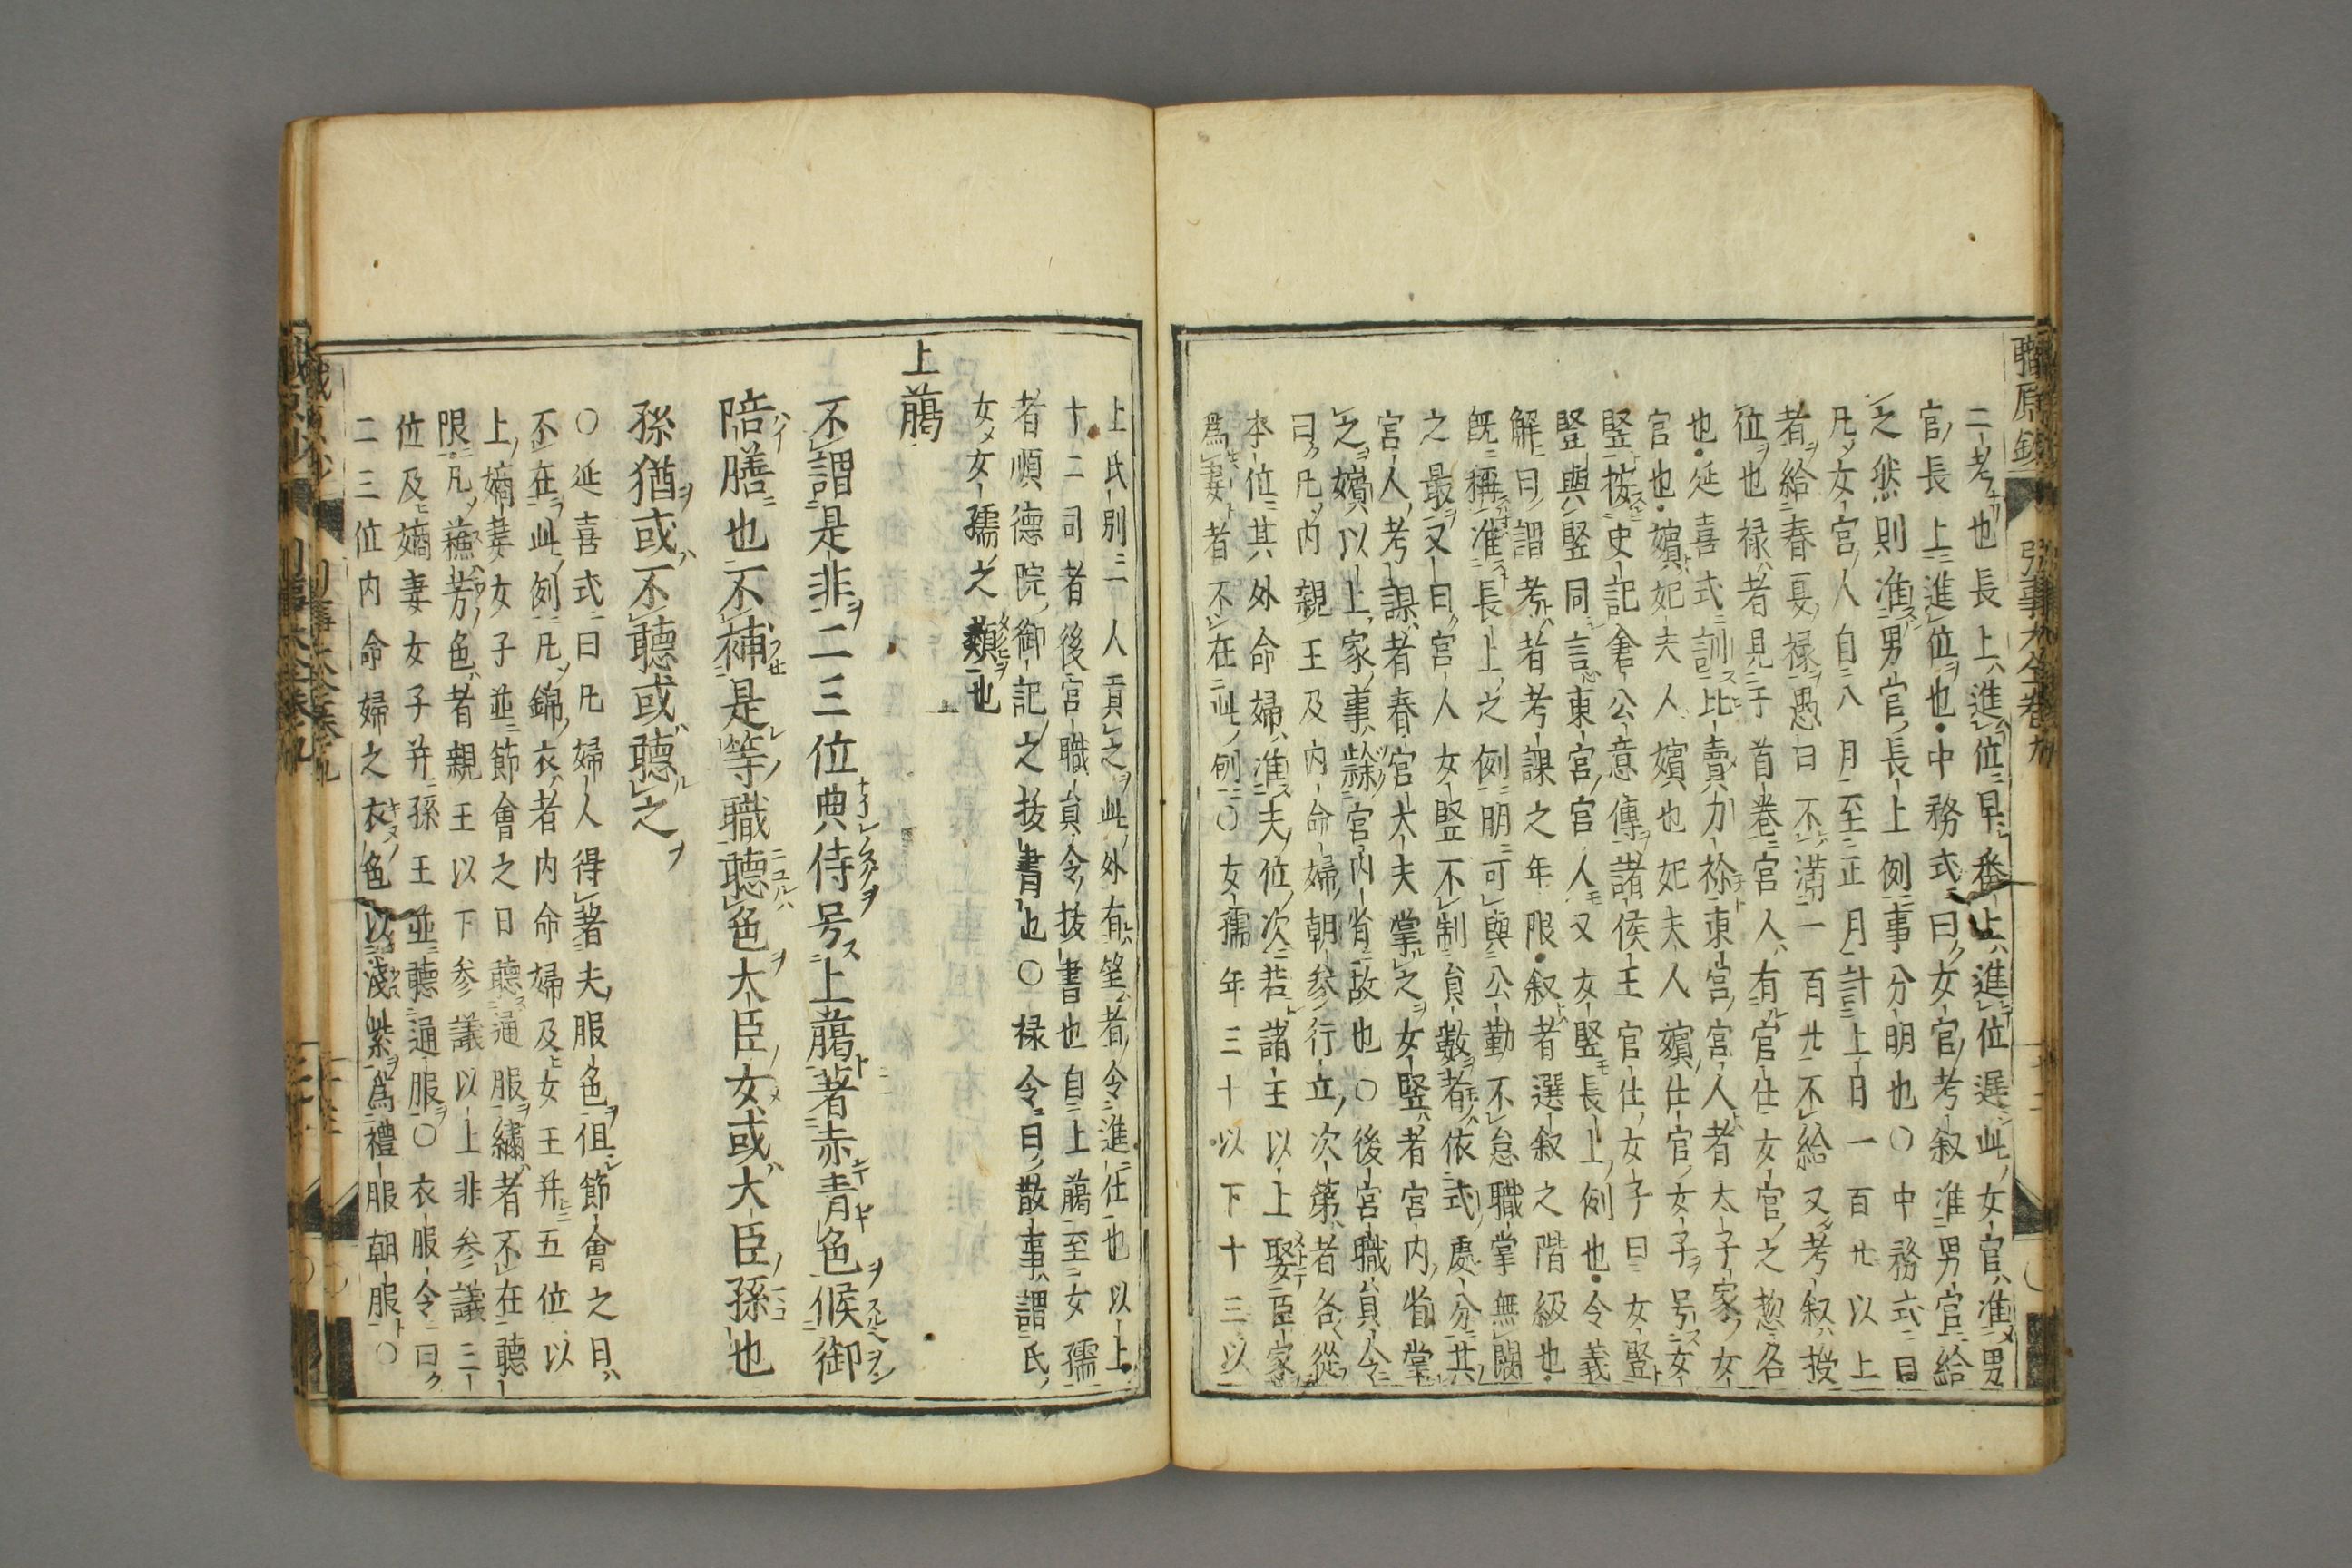 職原鈔 引事大全卷九
二考也長上進位早番上進位遲此女官准男
官長上進位也中務式曰女官考叙准男官給
之然則准男官長上例事分明也○中務式曰
凡女官人自八月至正月計上日一百廿以上
者給春夏禄愚曰不満一百廿不給又考叙授
位也禄者見于首卷宮人有官仕女官之惣名
也延喜式訓比賣力祢東宮宮人者太子家女
官也嬪妃夫人嬪也妃夫人嬪仕官女子号女
竪按史記倉公意傳諸侯王官仕女子曰女竪
竪與竪同言東宮宮人又女竪長上例也令義
解曰謂考者考課之年限叙者選叙之階級也
旣稱准長上之例明可與公勤不怠職掌無闕
之最又曰宮人女竪不制員數者依式處分其
宮人考課者春宮大夫掌之女竪者宮内省掌
之嬪以上家事隸宮内省故也○後宮職員令
曰凡内親王及内命婦朝参行立次第者各從
本位其外命婦准夫位次若諸主以上娶臣家
爲妻者不在此例○女孺年三十以下十三以
上氏別一人貢之此外有望者令進仕也以上
十二司者後宮職員令抜書也自上﨟至女孺
者順德院御記之抜書也○禄令曰散事謂氏
女女孺之類也
上﨟
不謂是非二三位典侍号上﨟著赤青色候御
陪膳也不補是等職聴色大臣女或大臣孫也
孫猶或不聴或聴之
○延喜式曰凡婦人得著夫服色但節會之日
不在此例凡錦衣者内命婦及女王并五位以
上嫡妻女子並節會之日聴通服繡者不在聴
限凡蘓芳色者親王以下参議以上非参議三
位及嫡妻女子并孫王並聴通服○衣服令曰
二三位内命婦之衣色以淺紫爲禮服朝服○